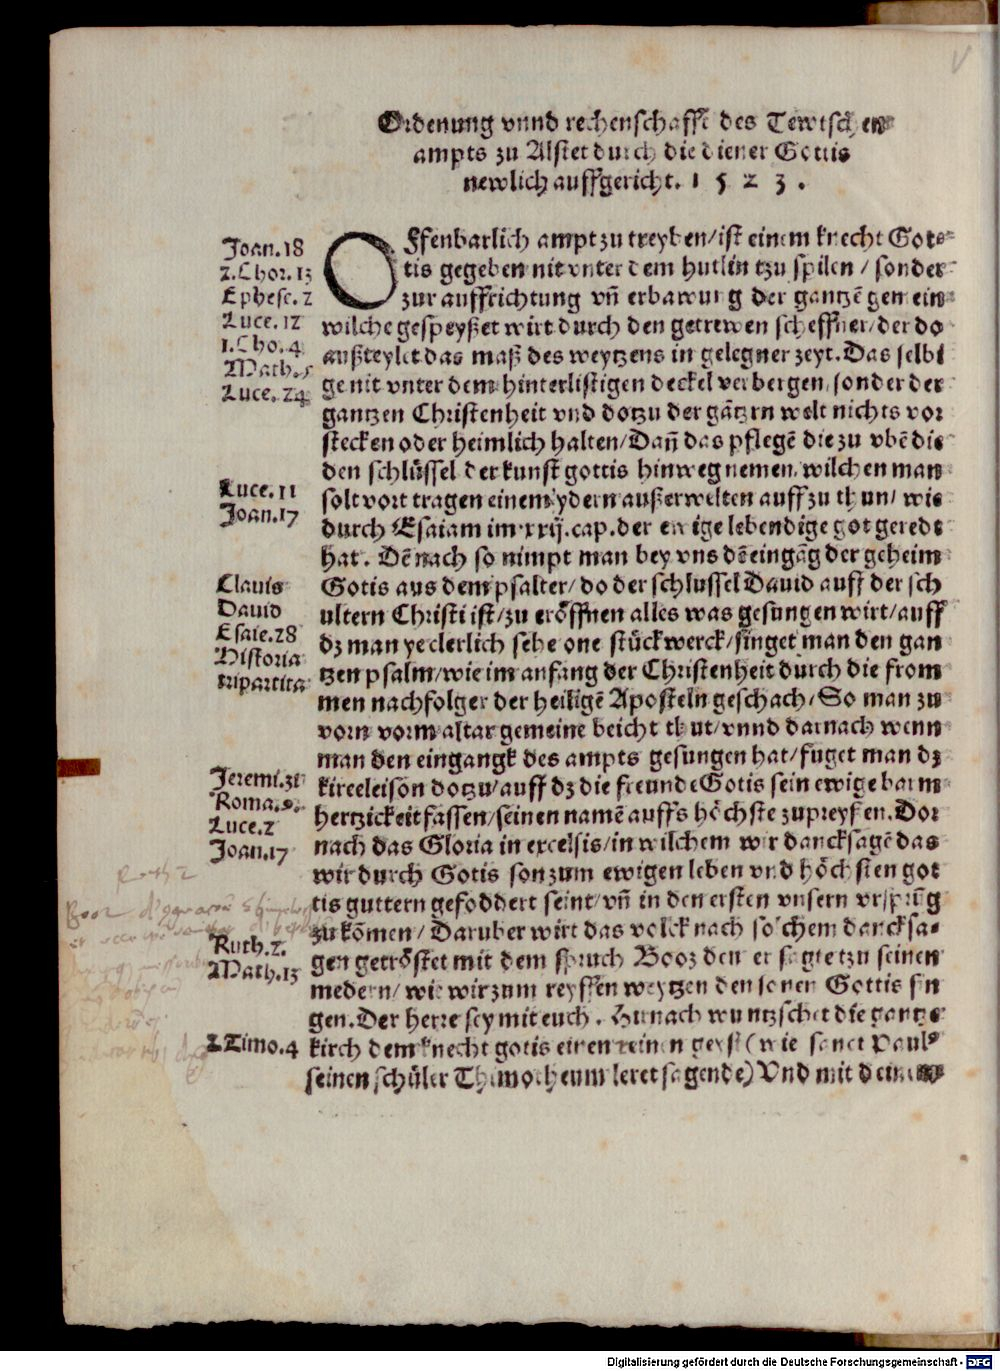 Ordenung vnnd rechenschafft des Tewtschen
ampts zu Alstet durch die diener Gottis
newlich auffgericht. 1 5 2 3 .
OFfenbarlich ampt zu treyben/ ist einem knecht Got⸗
tis gegeben nit vnter dem hutlin tzu spilen / sonder
zur auffrichtung vñ erbawung der gantzē gemein
wilche gespeyßet wirt durch den getrewen scheffner/ der do
außteylet das maß des weytzens in gelegner zeyt. Das selbi
ge nit vnter dem hinterlistigen deckel verbergen/ sonder der
gantzen Christenheit vnd dotzu der gātzen welt nichts vor
stecken oder heimlich halten/ Dañ das pflegē die zu vbē die
den schlüssel der kunst gottis hinweg nemen/ wilchen man
solt vort tragen einem ydern außerwelten auff zu thun/ wie
durch Esaiam im xxij. cap. der ewige lebendige got geredt
hat. Dē nach so nimpt man bey vns dē eingāg der geheim
Gotis aus dem psalter/ do der schlussel Dauid auff der sch
ultern Christi ist/ zu eröffnen alles was gesungen wirt/ auff
dz man yeclerlich sehe one stückwerck/ singet man den gan
tzen psalm/ wie im anfang der Christenheit durch die from
men nachfolger der heiligē Aposteln geschach/ So man zu
vorn vorm altar gemeine beicht thut/ vnnd darnach wenn
man den eingangk des ampts gesungen hat/ fuget man dz
kireeleison dotzu/ auff dz die freunde Gotis sein ewige barm
hertzickeit fassen/ seinen namē auffs höchste zu preysen. Dor
nach das Gloria in excelsis/ in wilchem wir dancksagē das
wir durch Gotis son zum ewigen leben vnd höchsten got
tis guttern gefoddert seint/ vñ in den ersten vnsern vrsprūg
zu kōmen/ Daruber wirt das volck nach solchem dancksa⸗
gen getröstet mit dem spruch Booz den er sagte tzu seinen
medern/ wie wir zum reyffen weytzen den sonen Gottis sin
gen. Der herre sey mit euch. Hirnach wuntzschet die gantze
kirch dem knecht gotis einen reinen geyst (wie sanct Paul⁹
seinen schüler Thimotheum leret sagende) Vnd mit deinem
Joan. 18
2. Chor. 13
Ephese. 2
Luce. 12
1. Cho. 4
Math. 5
Luce. 24
Luce. 11
Joan. 17
Clauis
Dauid
Esaie. 28
Historia
tripartita
Jeremi. 31
Roma. 9.
Luce. 2
Joan. 17
Ruth 2
Booz
Ruth. 2.
Math. 13
2. Timo. 4
V
Digitalisierung gefördert durch die Deutsche Forschungsgemeinschaft - DFG